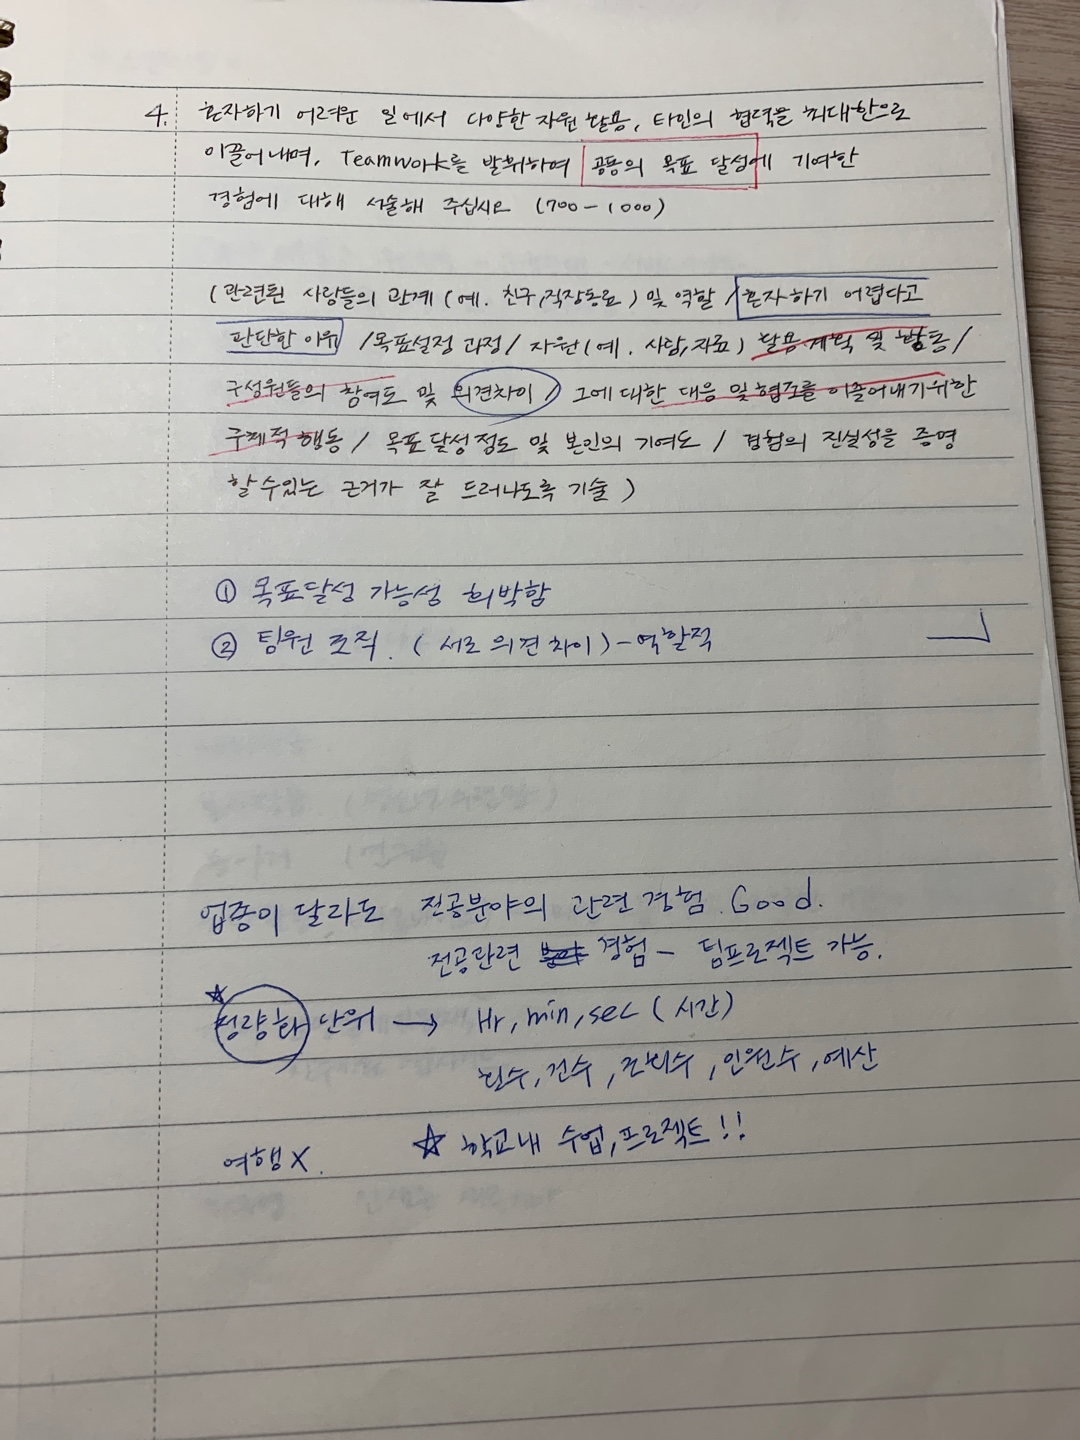 4. 혼자하기 어려운 일에서 다양한 자원 활용, 타인의 협력을 최대한으로
이끌어내며, Teamwork를 발휘하여 공동의 목표 달성에 기여한
경험에 대해 서술해 주십시오 (700-1000)
(관련된 사람들의 관계 (예. 친구, 직장동료) 및 역할 / 혼자하기 어렵다고
판단한 이유 / 목표설정 과정 / 자원 (예. 사람, 자료) 활용 계획 및 행동 /
구성원들의 참여도 및 의견차이 / 그에 대한 대응 및 협조를 이끌어내기위한
구체적 행동 / 목표 달성 정도 및 본인의 기여도 / 경험의 진실성을 증명
할 수 있는 근거가 잘 드러나도록 기술)
① 목표달성 가능성 희박함
② 팀원 조직. (서로 의견 차이) - 역할적
업종이 달라도 전공분야의 관련 경험. Good.
전공관련 경험 - 팀프로젝트 가능.
☆ 정량화 단위 → Hr, min, sec (시간)
횟수, 건수, 조회수, 인원수, 예산
여행 X. ☆ 학교내 수업, 프로젝트!!